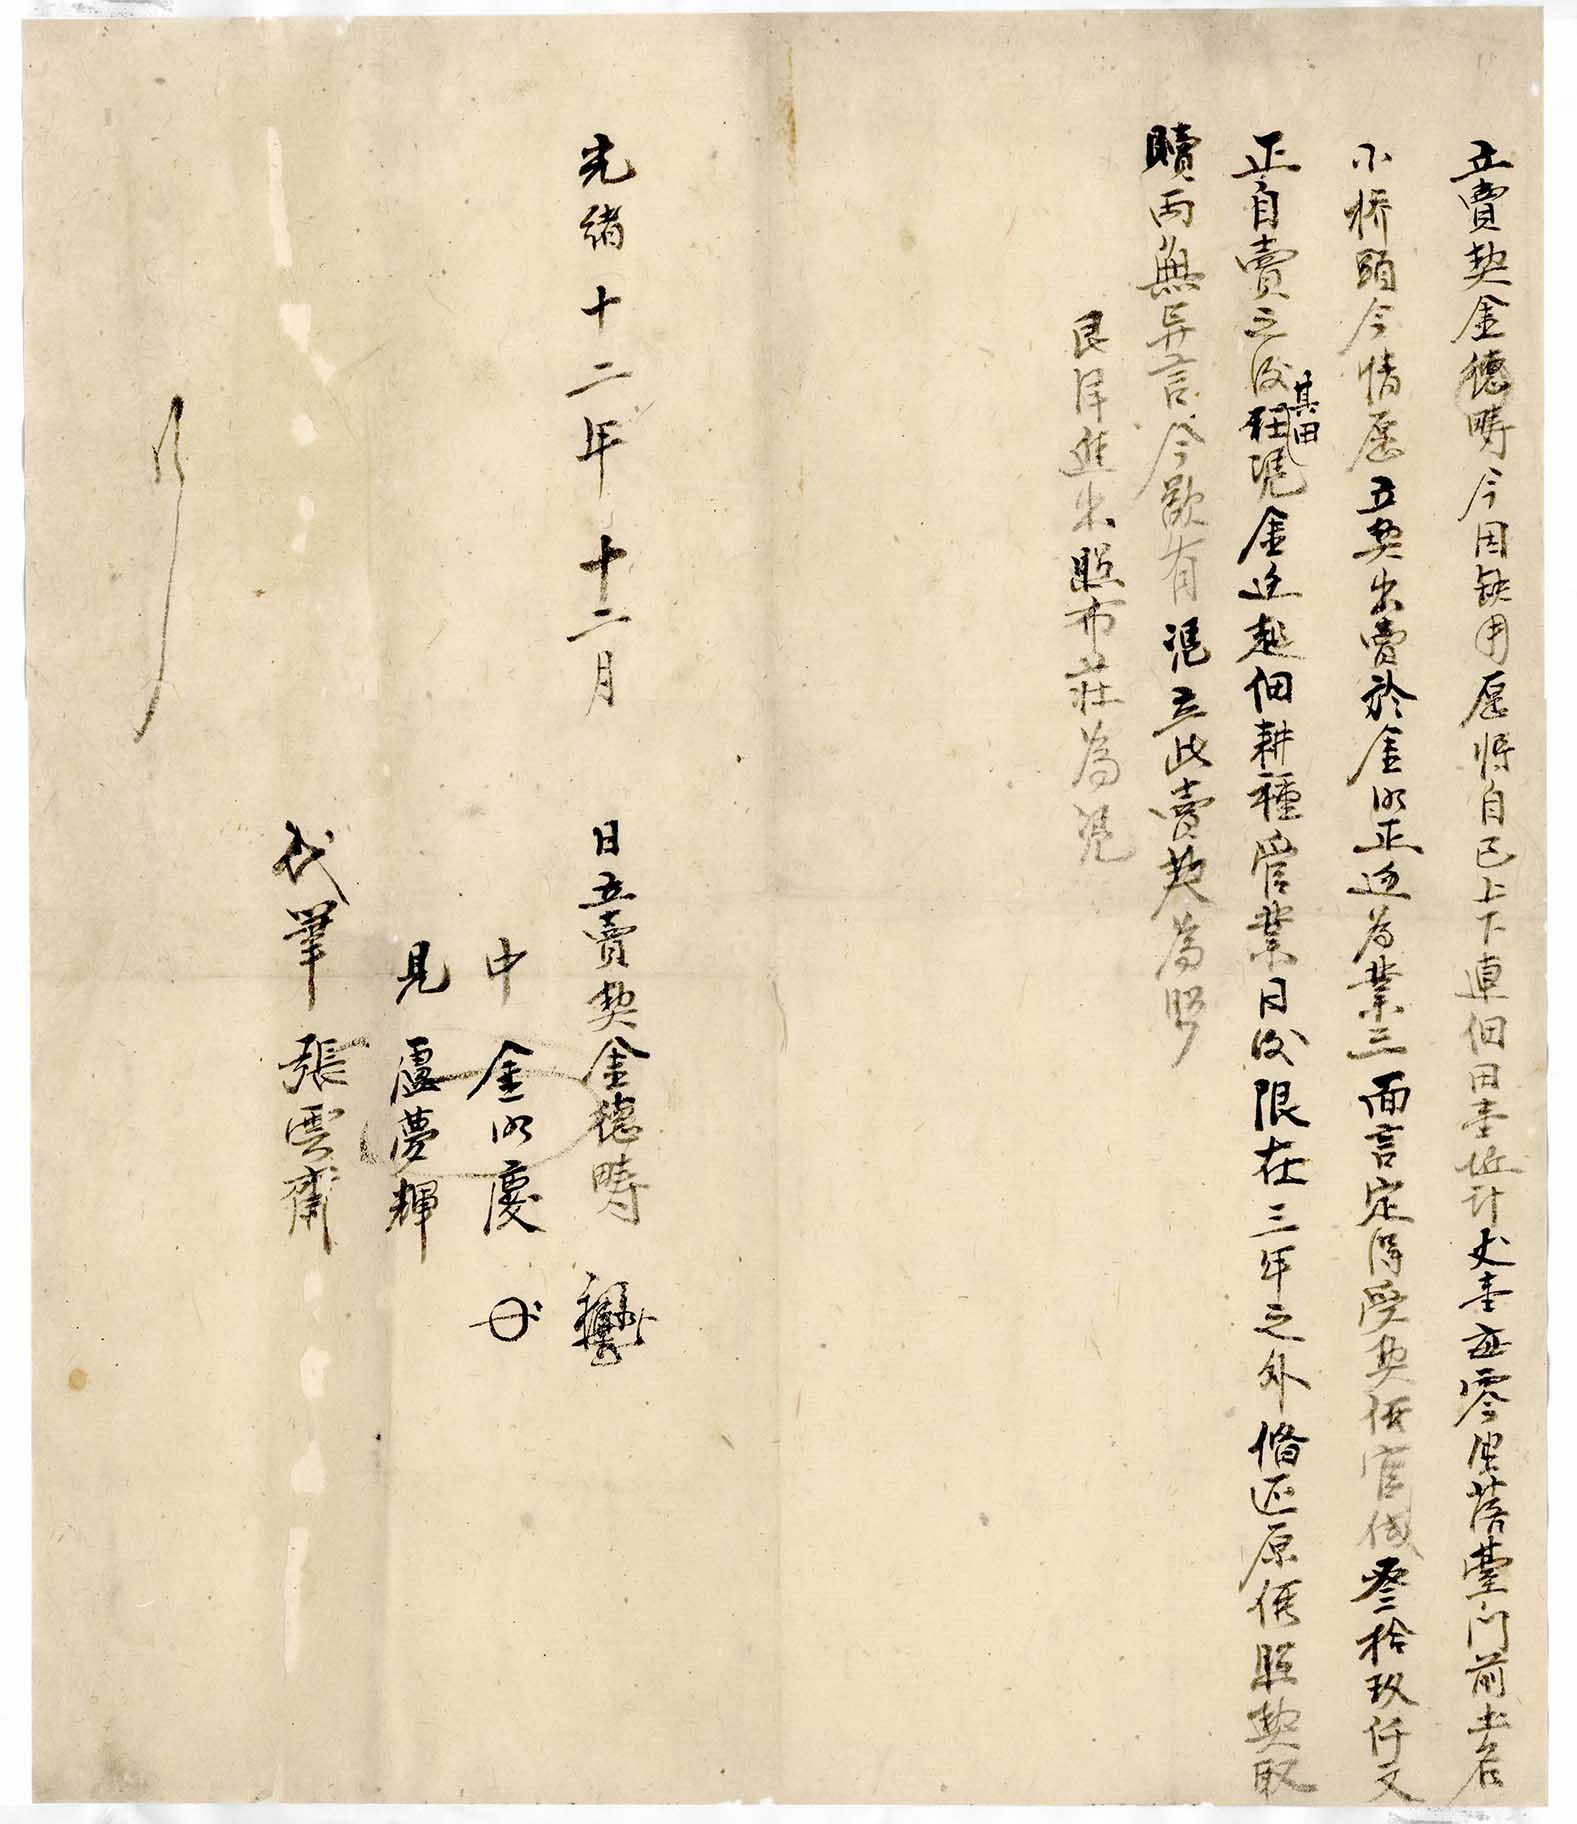 立賣契金德疇今因缺用愿將自己上下連佃田壹坵計丈壹畝零坐落臺門前土名
小桥頭今情愿立契出賣於金 正 為業三面言定得受契價官錢叁拾玖仟文
正自賣之後其田任凭金 起佃耕種管業日後限在三年之外俻还原價照契取
贖兩無异言今欲有凭立此賣契為照
艮洋進出照市莊為凭
光緒十二年十二月 日立賣契金德疇
中 金 慶
見 盧夢輝
代筆 張雲齋